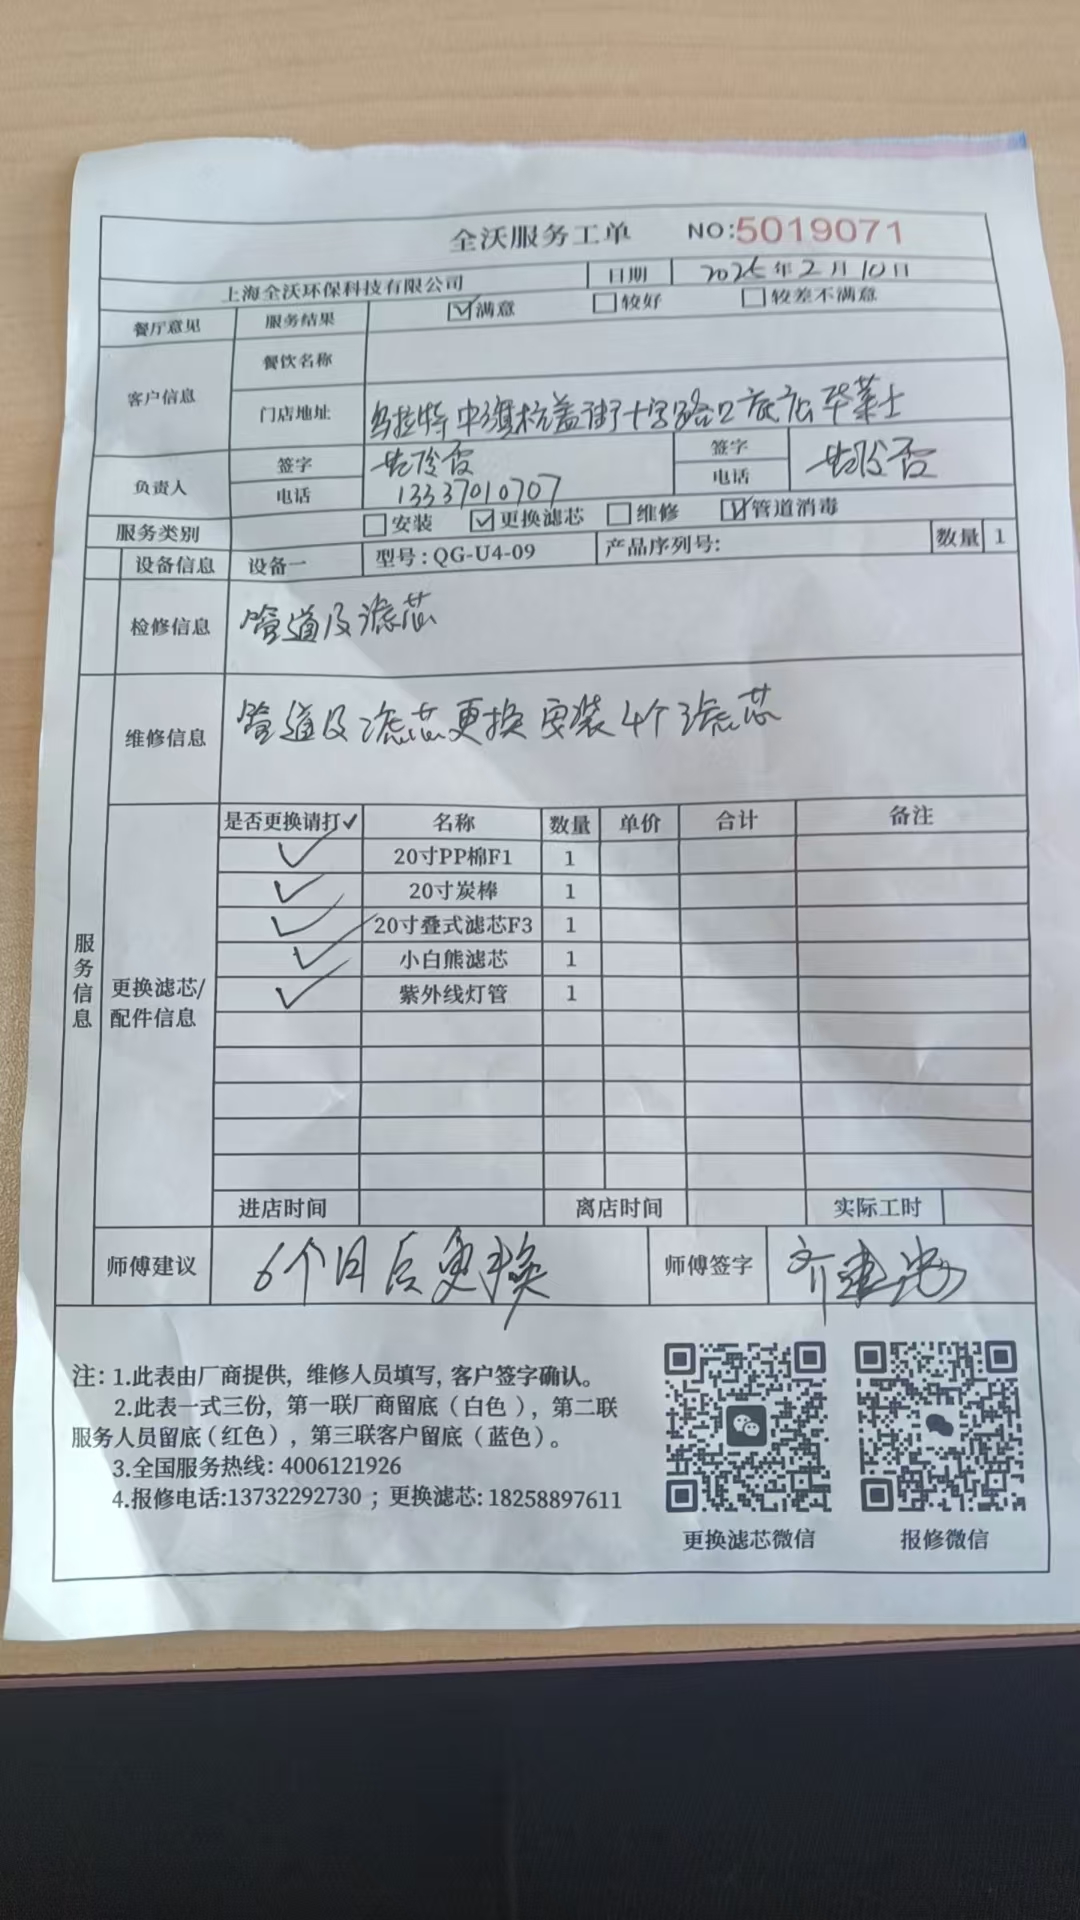 全沃服务工单 NO:5019071
上海全沃环保科技有限公司 日期 2025年2月10日
餐厅意见 服务结果 ☑满意 ☐较好 ☐较差不满意
客户信息 餐饮名称
门店地址 乌拉特中旗杭盖街十字路口底店华莱士
负责人 签字 签字
电话 13337010707 电话
服务类别 ☐安装 ☑更换滤芯 ☐维修 ☑管道消毒
设备信息 设备一 型号:QG-U4-09 产品序列号: 数量 1
检修信息 管道及滤芯
维修信息 管道及滤芯更换 安装4个滤芯
服务信息
更换滤芯/配件信息
是否更换请打✓ 名称 数量 单价 合计 备注
✓ 20寸PP棉F1 1
✓ 20寸炭棒 1
✓ 20寸叠式滤芯F3 1
✓ 小白熊滤芯 1
✓ 紫外线灯管 1
进店时间 离店时间 实际工时
师傅建议 6个月后更换 师傅签字
注：1.此表由厂商提供，维修人员填写，客户签字确认。
2.此表一式三份，第一联厂商留底（白色），第二联
服务人员留底（红色），第三联客户留底（蓝色）。
3.全国服务热线：4006121926
4.报修电话:13732292730 ；更换滤芯：18258897611
更换滤芯微信 报修微信